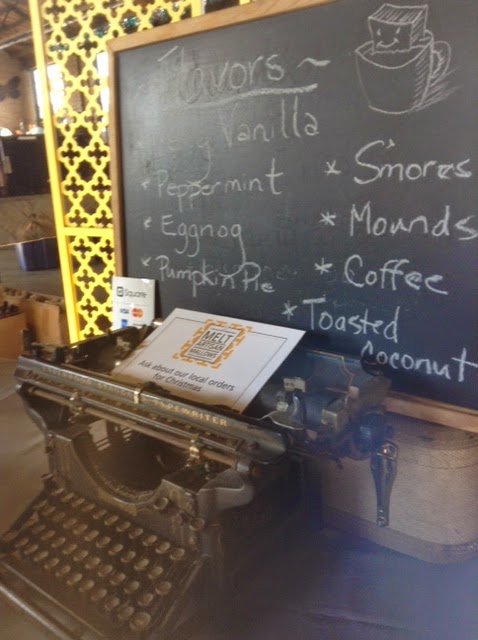 Flavors ~
Vanilla
* Peppermint
* Eggnog
* Pumpkin Pie
* S'mores
* Mounds
* Coffee
* Toasted
Coconut
Square
VISA
MELT
ARTISAN
MALLOWS
Ask about our local orders
for Christmas
TYPEWRITER